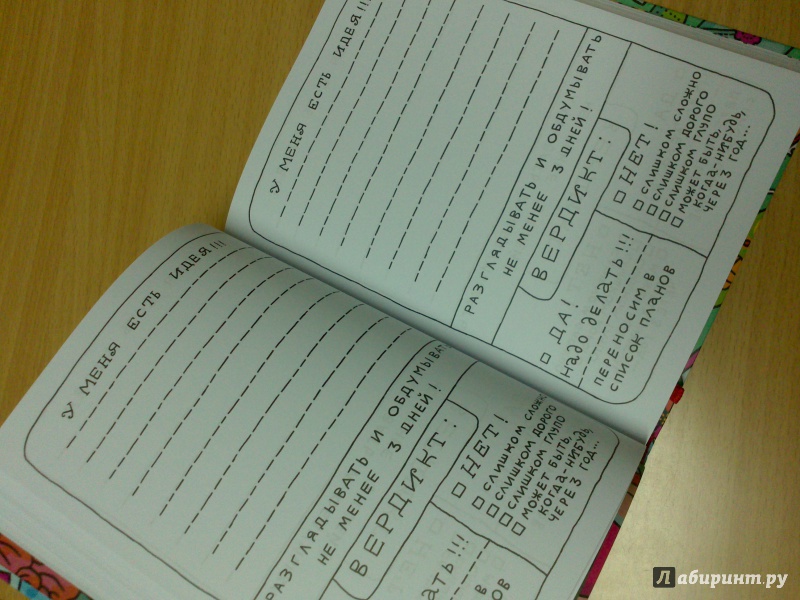 У МЕНЯ ЕСТЬ ИДЕЯ!!!
РАЗГЛЯДЫВАТЬ И ОБДУМЫВАТЬ
НЕ МЕНЕЕ 3 ДНЕЙ!
ВЕРДИКТ:
НЕТ!
СЛИШКОМ СЛОЖНО
СЛИШКОМ ДОРОГО
СЛИШКОМ ГЛУПО
МОЖЕТ БЫТЬ,
КОГДА-НИБУДЬ,
ЧЕРЕЗ ГОД...
У МЕНЯ ЕСТЬ ИДЕЯ!!!
РАЗГЛЯДЫВАТЬ И ОБДУМЫВАТЬ
НЕ МЕНЕЕ 3 ДНЕЙ!
ВЕРДИКТ:
ДА!
НАДО ДЕЛАТЬ!!!
ПЕРЕНОСИМ В
СПИСОК ПЛАНОВ
НЕТ!
СЛИШКОМ СЛОЖНО
СЛИШКОМ ДОРОГО
СЛИШКОМ ГЛУПО
МОЖЕТ БЫТЬ,
КОГДА-НИБУДЬ,
ЧЕРЕЗ ГОД...
Лабиринт.ру